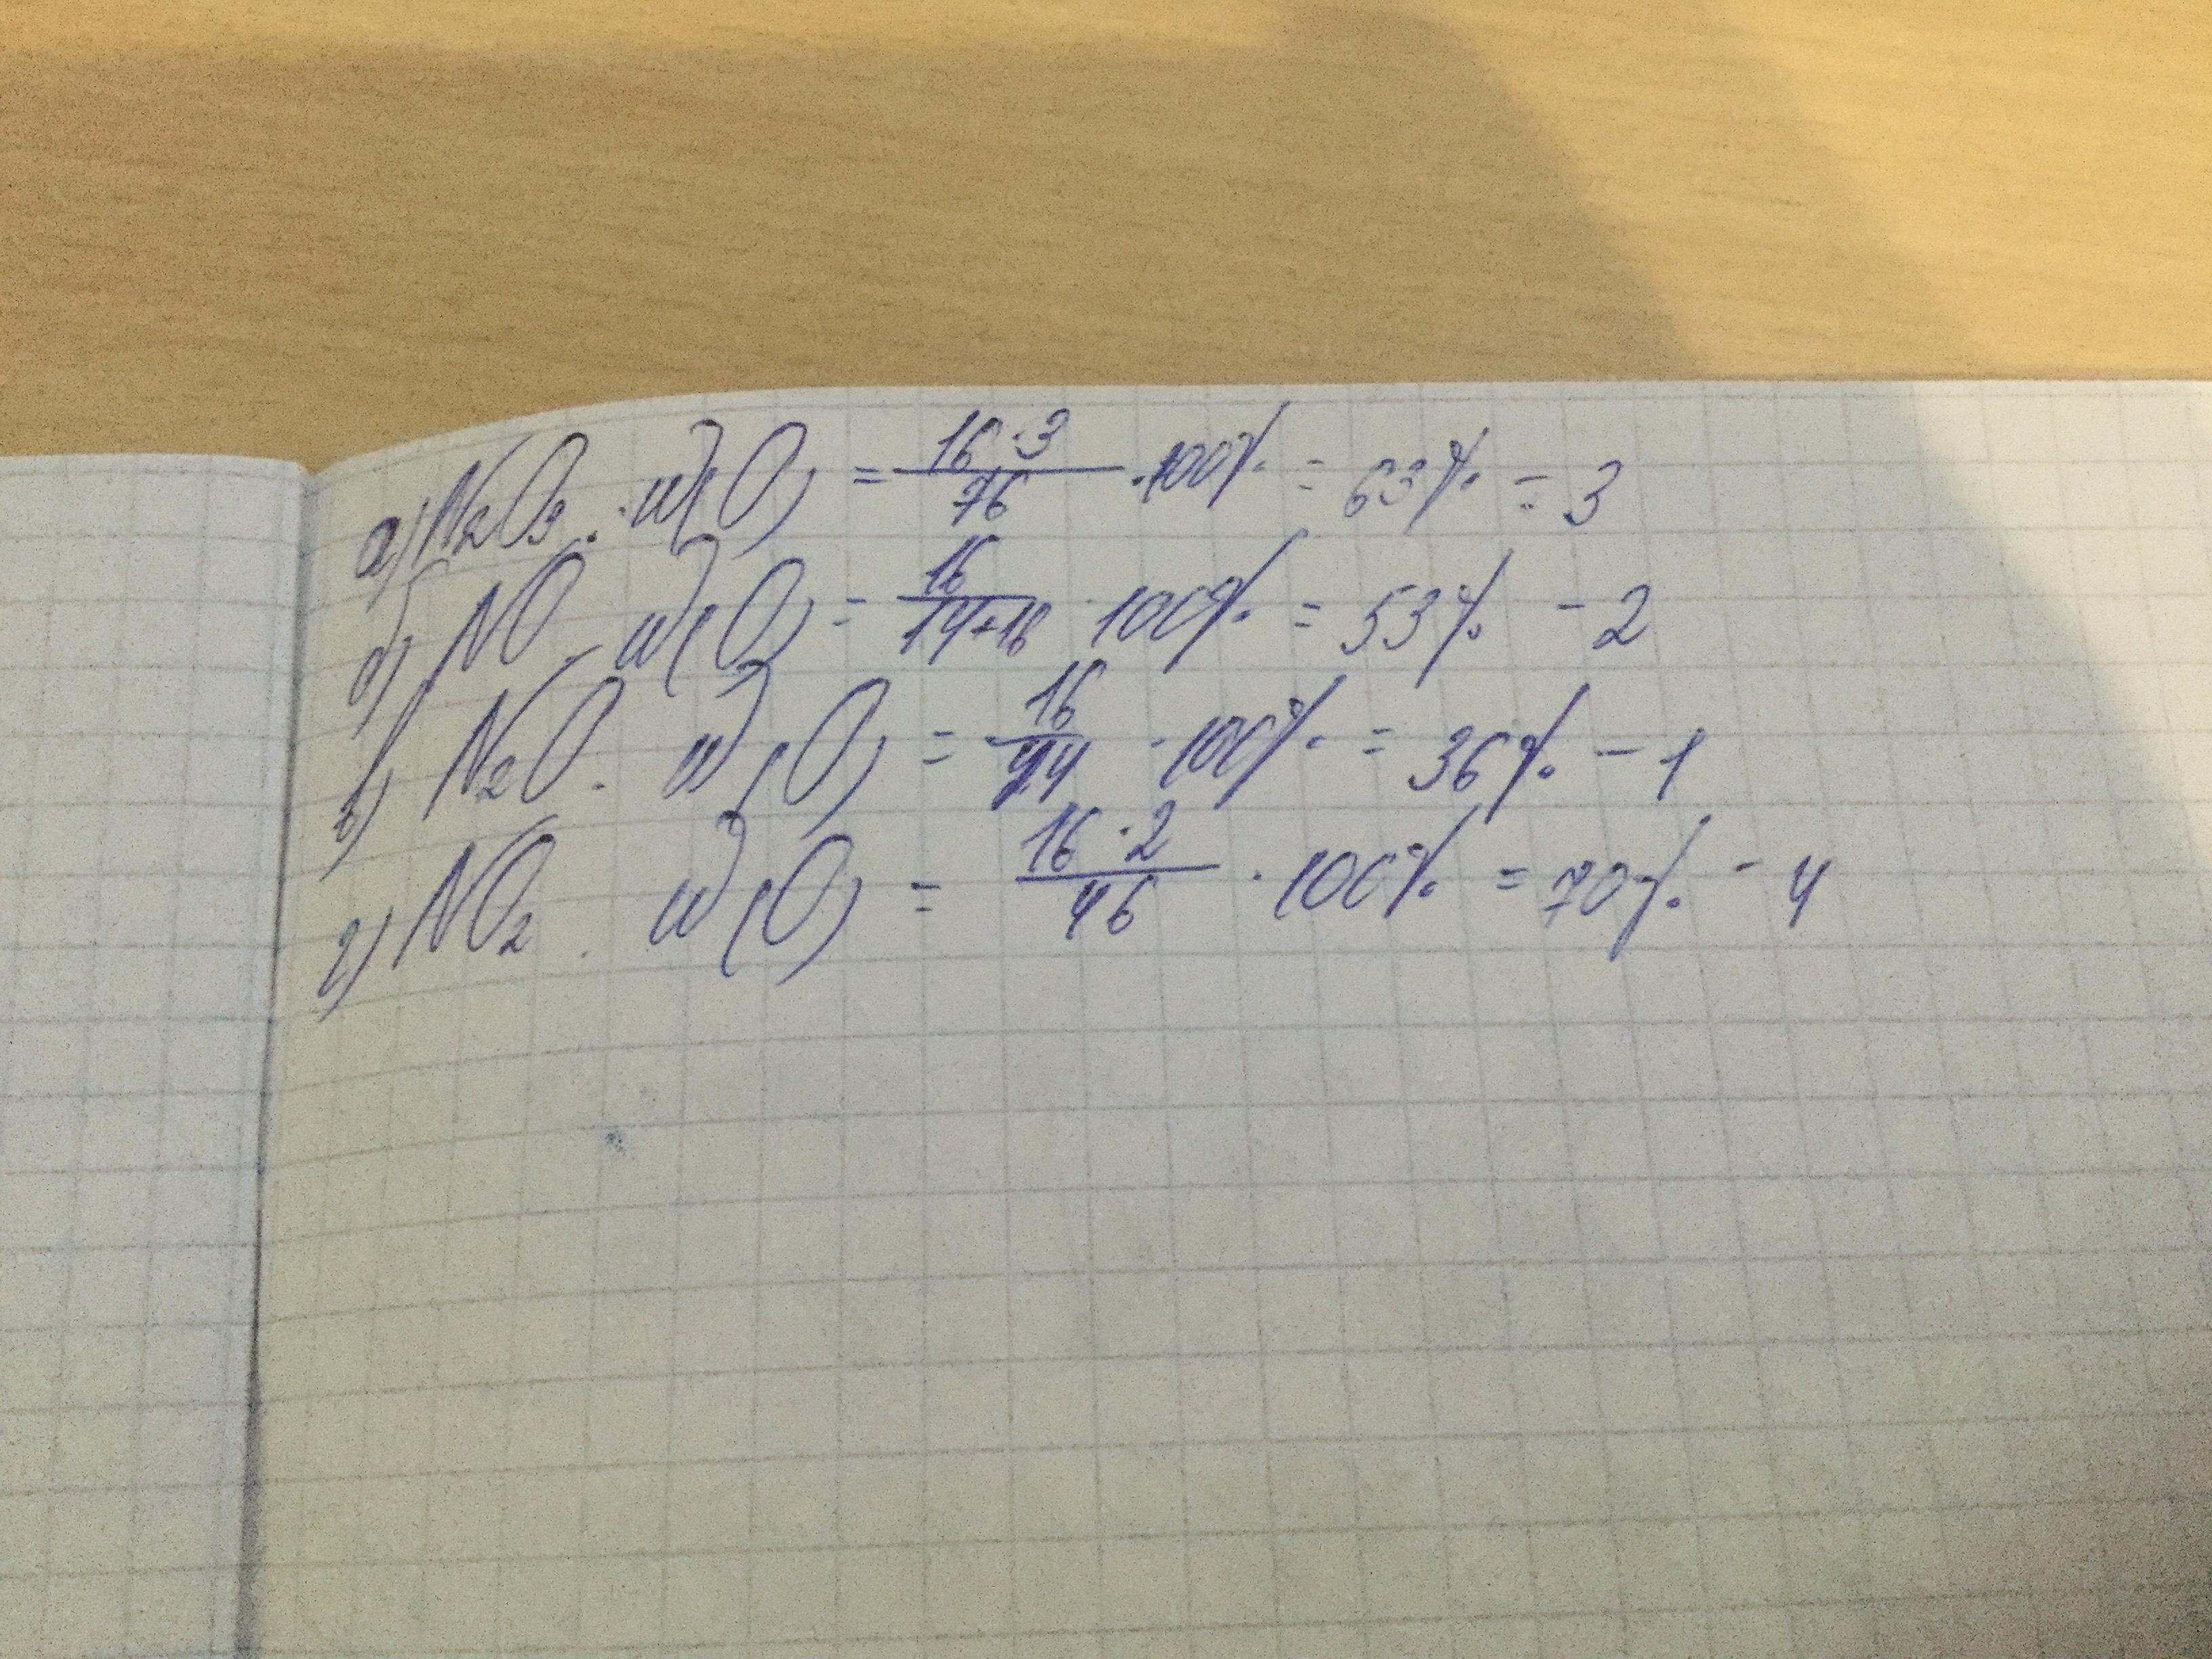 а) N₂O₃. w(O) = 16·3/76 ·100% = 63% = 3
б) NO. w(O) = 16/14+16 ·100% = 53% - 2
в) N₂O. w(O) = 16/44 ·100% = 36% - 1
г) NO₂. w(O) = 16·2/46 ·100% = 70% - 4